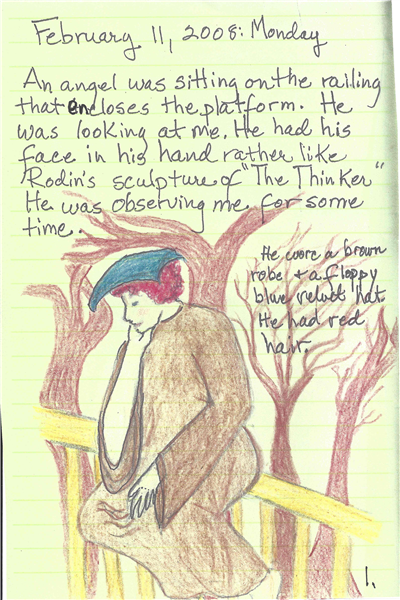 February 11, 2008: Monday
An angel was sitting on the railing
that encloses the platform. He
was looking at me. He had his
face in his hand rather like
Rodin's sculpture of "The Thinker"
He was observing me for some
time.
He wore a brown
robe + a floppy
blue velvet hat.
He had red
hair.
1.